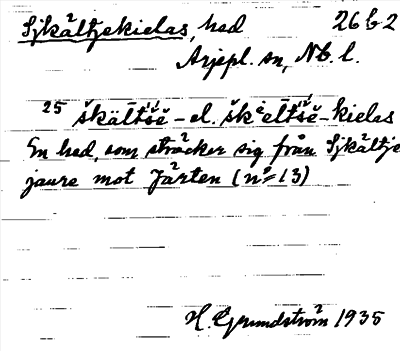 Sjkältjekielas, hed 26 b 2
Arjepl. sn, Nb. l.
25 škältsē - el. škeltsē - kielas
En hed, som sträcker sig från Sjkältje-
jaure mot Järten (nº 13)
H. Grundström 1935